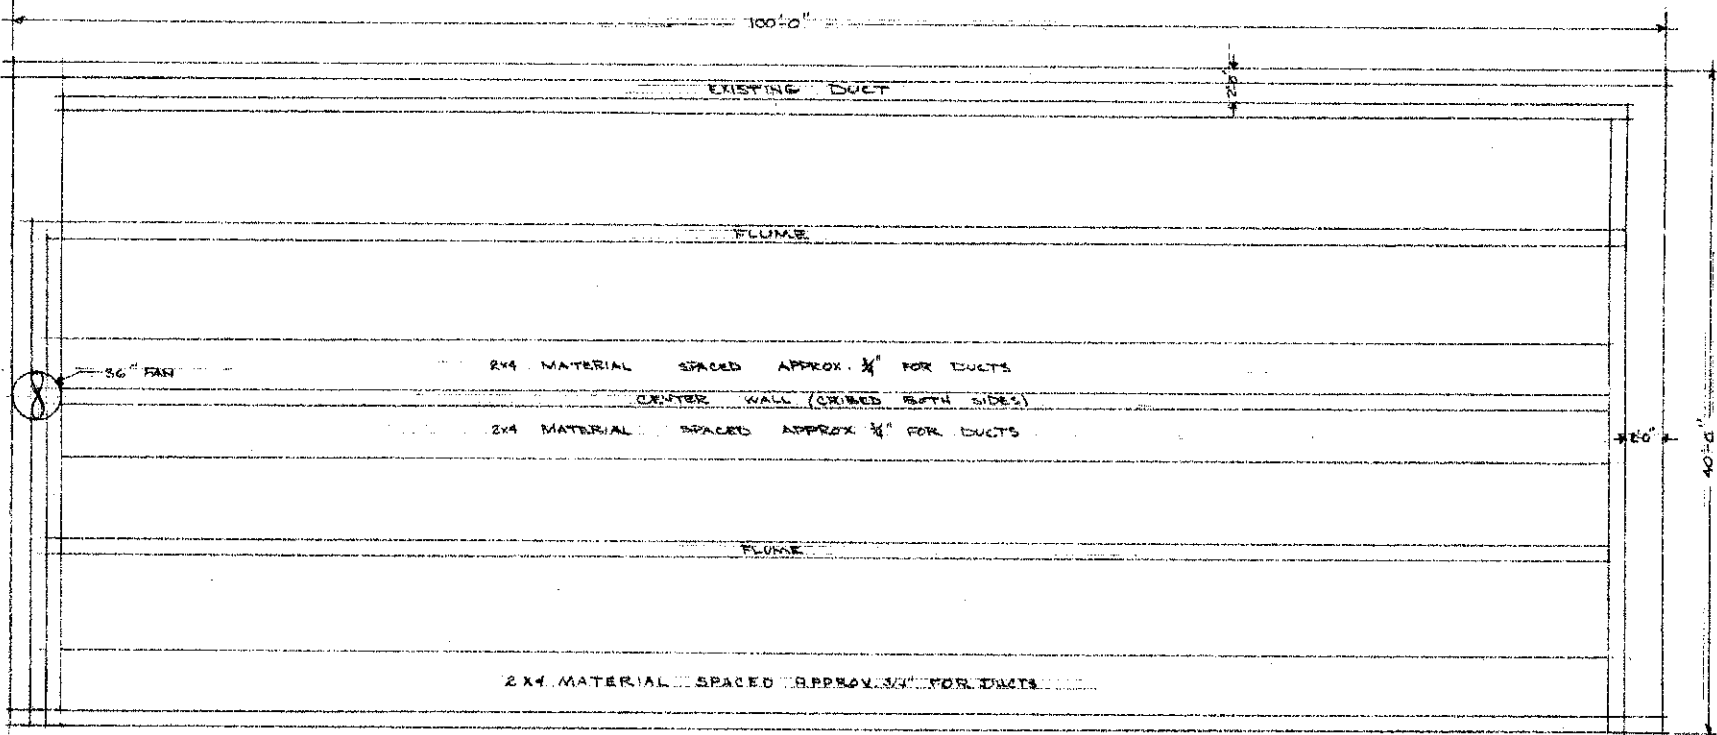 100'-0"
EXISTING DUCT
FLUME
36" FAN
2x4 MATERIAL SPACED APPROX. ¾" FOR DUCTS
CENTER WALL (CRIBED BOTH SIDES)
2x4 MATERIAL SPACED APPROX ¾" FOR DUCTS
2'0"
40'-0"
FLUME
2 X 4 MATERIAL SPACED APPROX 3/4" FOR DUCTS